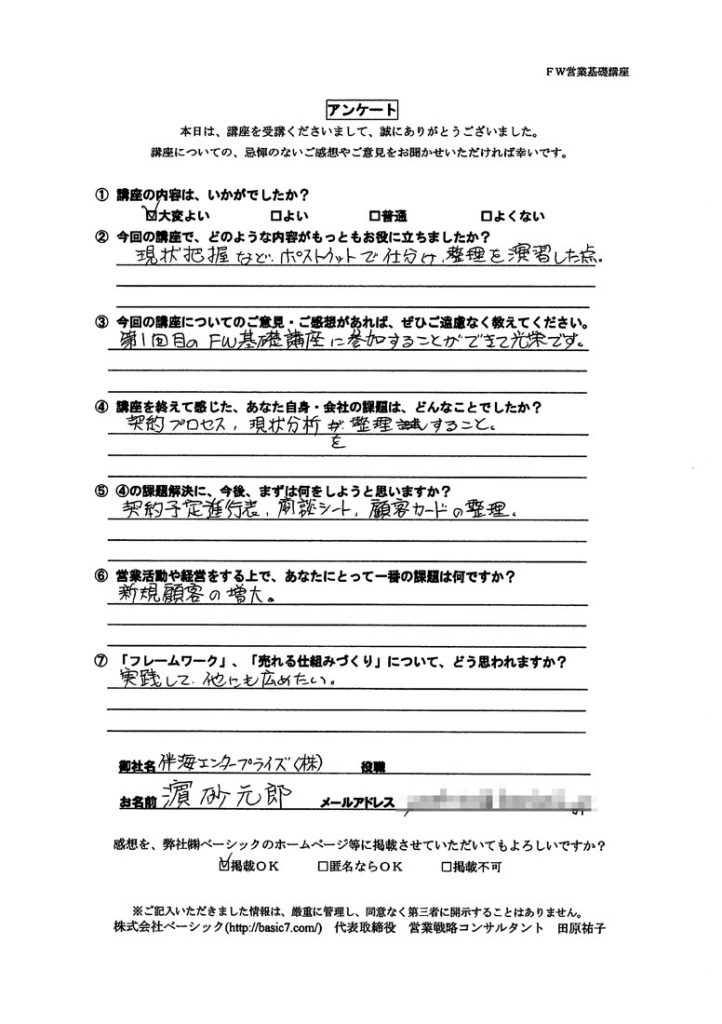 FW営業基礎講座
アンケート
本日は、講座を受講くださいまして、誠にありがとうございました。
講座についての、忌憚のないご感想やご意見をお聞かせいただければ幸いです。
① 講座の内容は、いかがでしたか？
☑大変よい □よい □普通 □よくない
② 今回の講座で、どのような内容がもっともお役に立ちましたか？
現状把握など、ポストイットで仕分け、整理を演習した点。
③ 今回の講座についてのご意見・ご感想があれば、ぜひご遠慮なく教えてください。
第1回目のFW基礎講座に参加することができて光栄です。
④ 講座を終えて感じた、あなた自身・会社の課題は、どんなことでしたか？
契約プロセス、現状分析を整理すること。
⑤ ④の課題解決に、今後、まずは何をしようと思いますか？
契約予定進行表、商談シート、顧客カードの整理。
⑥ 営業活動や経営をする上で、あなたにとって一番の課題は何ですか？
新規顧客の増大。
⑦ 「フレームワーク」、「売れる仕組みづくり」について、どう思われますか？
実践して、他にも広めたい。
御社名 伴海エンタープライズ(株) 役職
お名前 濱砂元郎 メールアドレス
感想を、弊社㈱ベーシックのホームページ等に掲載させていただいてもよろしいですか？
☑掲載OK □匿名ならOK □掲載不可
※ご記入いただきました情報は、厳重に管理し、同意なく第三者に開示することはありません。
株式会社ベーシック(http://basic7.com/) 代表取締役 営業戦略コンサルタント 田原祐子